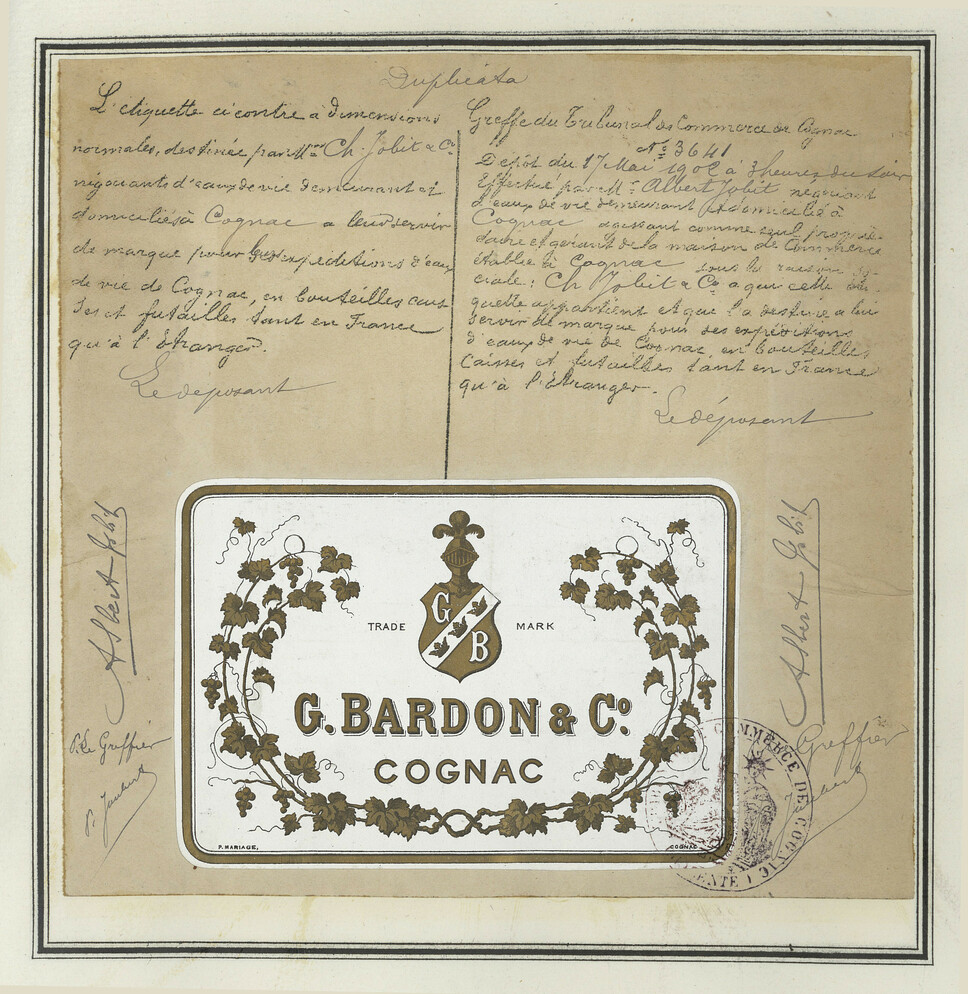 Duplicata
L'etiquette ci contre a dimensions
normales, destinée par Mrs Ch. Jobit & Co
négociants d'eaux de vie demeurant et
domiciliés à Cognac a leur servir
de marque pour expeditions d'eaux
de vie de Cognac, en bouteilles cais
ses et futailles tant en France
qu'à l'étranger.
Le déposant
Albert Jobit
P. Le Greffier
P. Joubert
Greffe du Tribunal de Commerce de Cognac
No 3641
Dépôt du 17 Mai 1902 à 3 heures du soir
Effectué par Mr Albert Jobit négociant
d'eaux de vie demeurant et domicilié à
Cognac agissant comme seul proprié-
taire et gérant de la maison de commerce
établie à Cognac sous la raison so-
ciale: Ch Jobit & Co a qui cette éti
quette appartient et que l'a destine a lui
servir de marque pour ses expéditions
d'eaux de vie de Cognac, en bouteilles
caisses et futailles tant en France
qu'à l'étranger.
Le déposant
Albert Jobit
Greffier
Joubert
G
B
TRADE MARK
G. BARDON & Co
COGNAC
F. MARIAGE, COGNAC
COMMERCE DE COGNAC